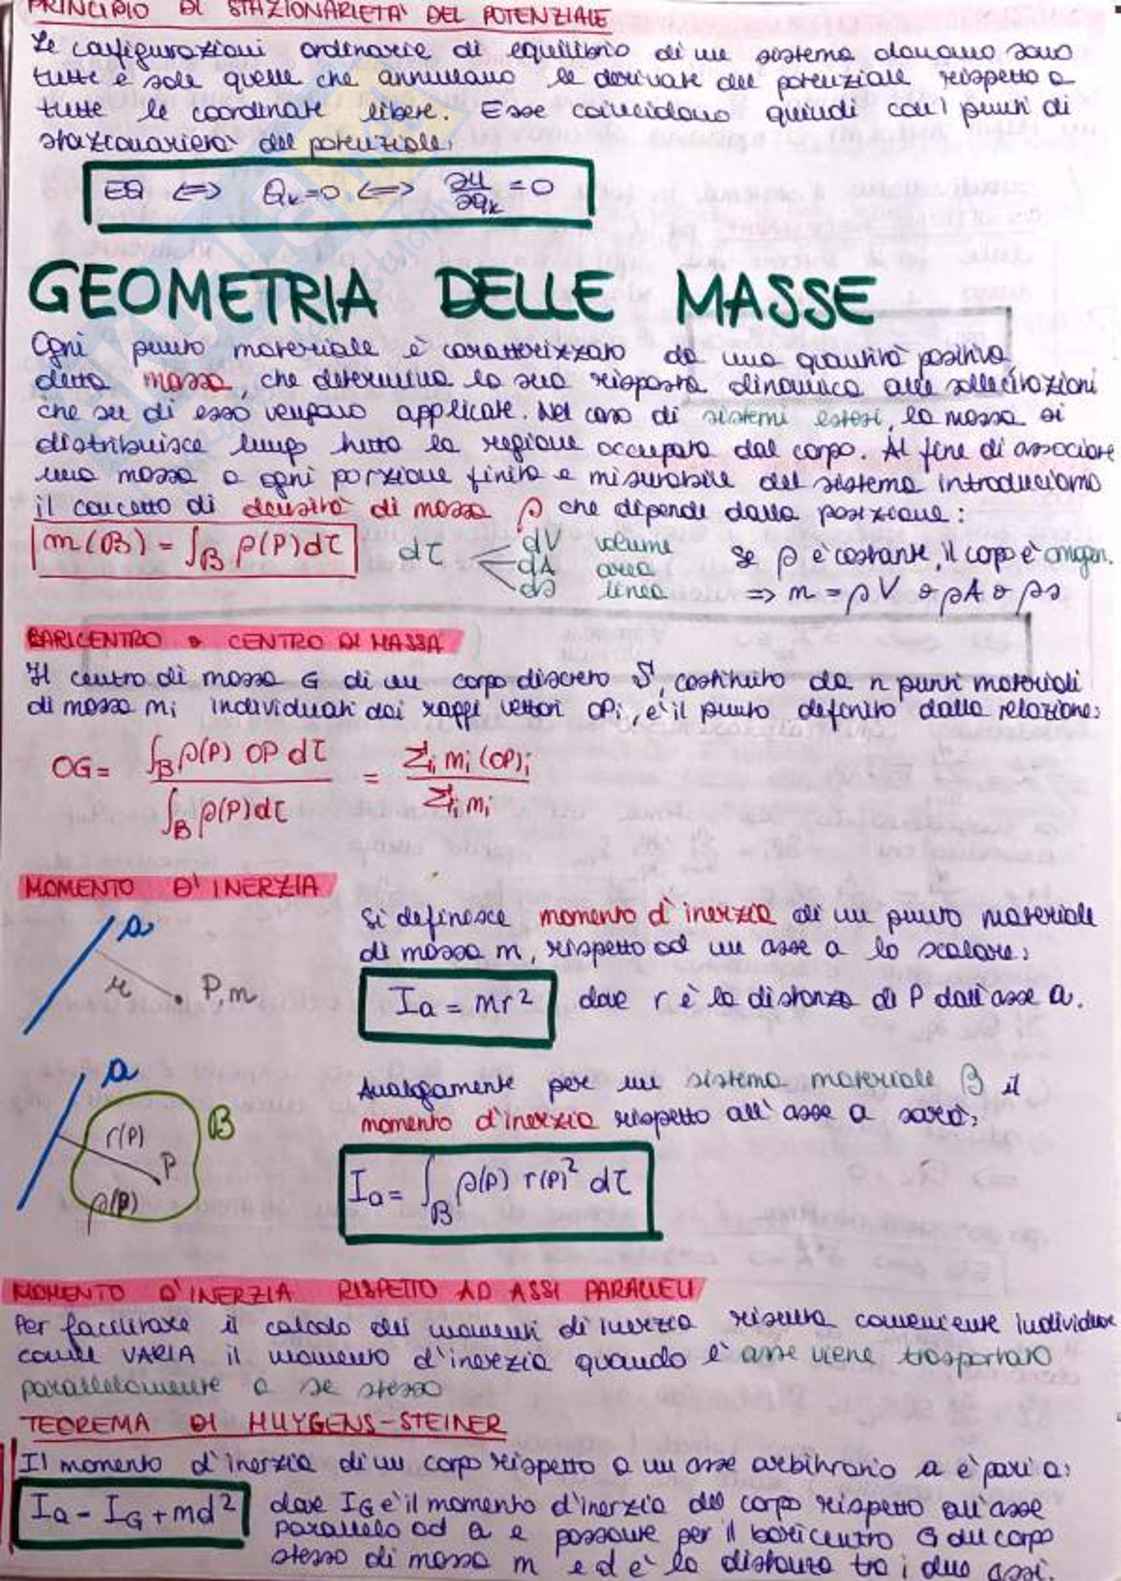 PRINCIPIO DI STAZIONARIETA' DEL POTENZIALE
Le configurazioni ordinarie di equilibrio di un sistema olonomo sono
tutte e sole quelle che annullano le derivate del potenziale rispetto a
tutte le coordinate libere. Esse coincidono quindi con i punti di
stazionarietà del potenziale:
EQ ⟺ Qk=0 ⟺ ∂U/∂qk = 0
GEOMETRIA DELLE MASSE
Ogni punto materiale è caratterizzato da una quantità positiva
detta massa, che determina la sua risposta dinamica alle sollecitazioni
che su di esso vengano applicate. Nel caso di sistemi estesi, la massa si
distribuisce lungo tutta la regione occupata dal corpo. Al fine di associare
una massa a ogni porzione finita e misurabile del sistema introduciamo
il concetto di densità di massa ρ che dipende dalla posizione:
m(B) = ∫B ρ(P)dτ dτ dV volume Se ρ è costante, il corpo è omogen.
dA area
ds linea ⇒ m = ρV o ρA o ρs
BARICENTRO o CENTRO DI MASSA
Il centro di massa G di un corpo discreto S, costituito da n punti materiali
di massa mi individuati dai raggi vettori OPi, è il punto definito dalla relazione:
OG = ∫B ρ(P) OP dτ / ∫B ρ(P)dτ = Σi mi (OP)i / Σi mi
MOMENTO D'INERZIA
a
r P,m
Si definisce momento d'inerzia di un punto materiale
di massa m, rispetto ad un asse a lo scalare:
Ia = mr² dove r è la distanza di P dall'asse a.
a
B
r(P)
P
ρ(P)
Analogamente per un sistema materiale B il
momento d'inerzia rispetto all'asse a sarà:
Ia = ∫B ρ(P) r(P)² dτ
MOMENTO D'INERZIA RISPETTO AD ASSI PARALLELI
Per facilitare il calcolo dei momenti di inerzia risulta conveniente individuare
come VARIA il momento d'inerzia quando l'asse viene trasportato
parallelamente a se stesso
TEOREMA DI HUYGENS-STEINER
Il momento d'inerzia di un corpo rispetto a un asse arbitrario a è pari a:
Ia = IG + md² dove IG è il momento d'inerzia del corpo rispetto all'asse
parallelo ad a e passante per il baricentro G del corpo
stesso di massa m e d è la distanza tra i due assi.